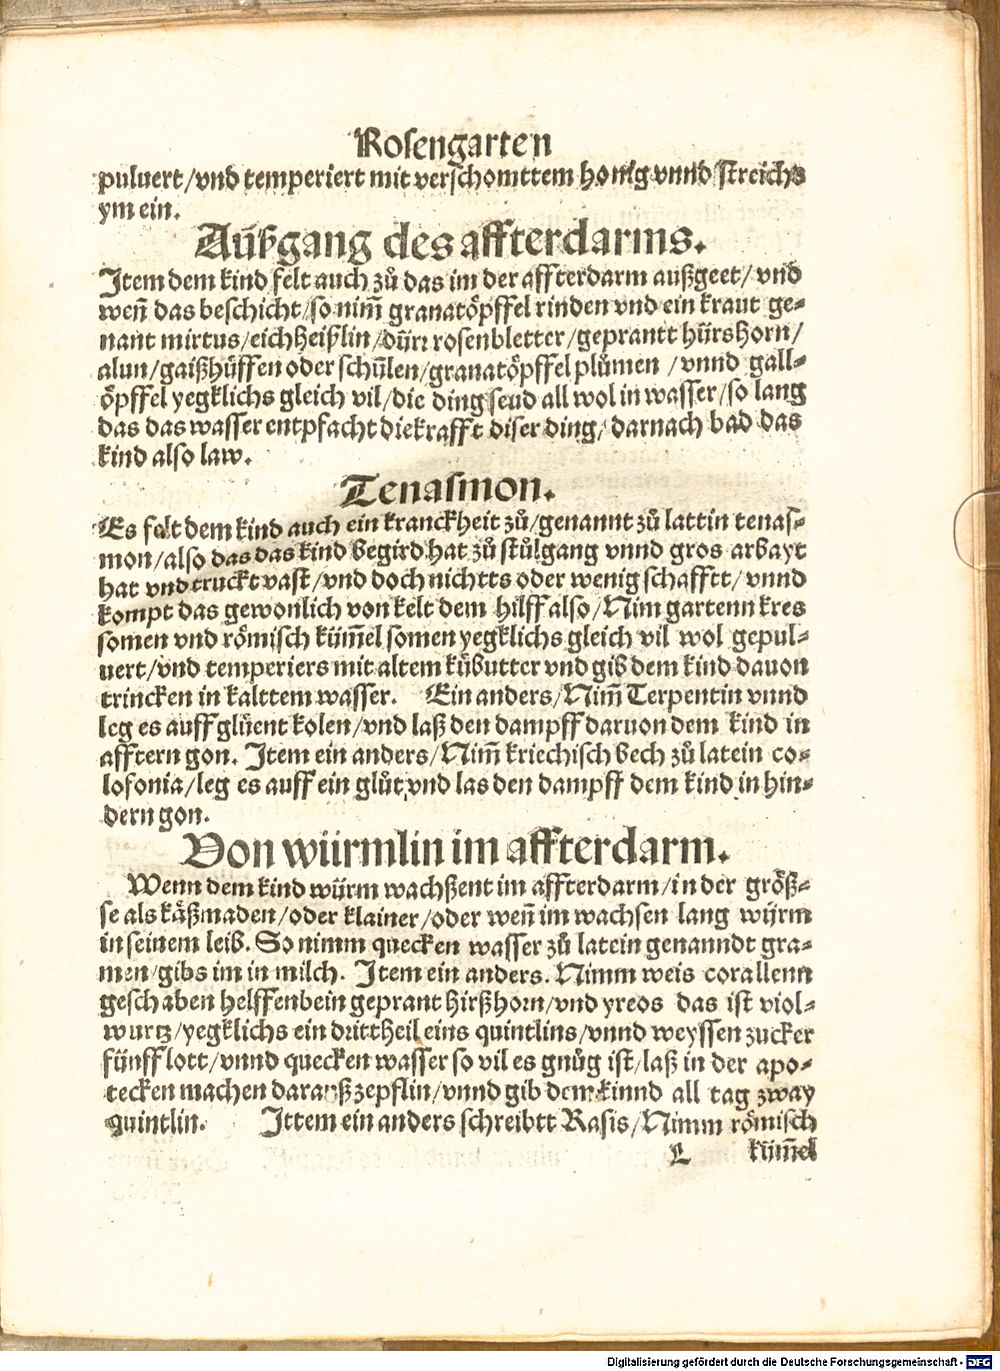 Rosengarten
puluert/vnd temperiert mit verschomttem honig vnnd streichs
ym ein.
Außgang des affterdarms.
Item dem kind felt auch zů das im der affterdarm außgeet/ vnd
weñ das beschicht/so nim̃ granatöpffel rinden vnd ein kraut ge-
nant mirtus/eichheißlin/dürr rosenbletter/geprantt hürshorn/
alun/gaißhüffen oder schůlen/granatöpffel plůmen /vnnd gall-
öpffel yegklichs gleich vil/die ding seud all wol in wasser/so lang
das das wasser entpfacht die krafft diser ding/ darnach bad das
kind also law.
Tenasmon.
Es felt dem kind auch ein kranckheit zů/genannt zů lattin tenas-
mon/also das das kind begird hat zů stůlgang vnnd gros arbayt
hat vnd truckt vast/vnd doch nichtts oder wenig schafftt/vnnd
kompt das gewonlich von kelt dem hilff also/Nim gartenn kres
somen vnd römisch küm̃el somen yegklichs gleich vil wol gepul-
uert/vnd temperiers mit altem kůbutter vnd gib dem kind dauon
trincken in kalttem wasser. Ein anders/Nim̃ Terpentin vnnd
leg es auff glüent kolen/vnd laß den dampff daruon dem kind in
afftern gon. Item ein anders/Nim̃ kriechisch bech zů latein co-
lofonia/leg es auff ein glůt vnd las den dampff dem kind in hin-
dern gon.
Von würmlin im affterdarm.
Wenn dem kind würm wachßent im affterdarm/in der größ-
se als käßmaden/oder klainer/oder weñ im wachsen lang würm
in seinem leib. So nimm quecken wasser zů latein genanndt gra-
men/gibs im in milch. Item ein anders. Nimm weis corallenn
geschaben helffenbein geprant hirßhorn/vnd yreos das ist viol-
wurtz/yegklichs ein drittheil eins quintlins/vnnd weyssen zucker
fünff lott/vnnd quecken wasser so vil es gnůg ist/laß in der apo-
tecken machen darauß zepflin/vnnd gib dem kinnd all tag zway
quintlin. Ittem ein anders schreibtt Rasis/Nimm römisch
L küm̃el
Digitalisierung gefördert durch die Deutsche Forschungsgemeinschaft - DFG